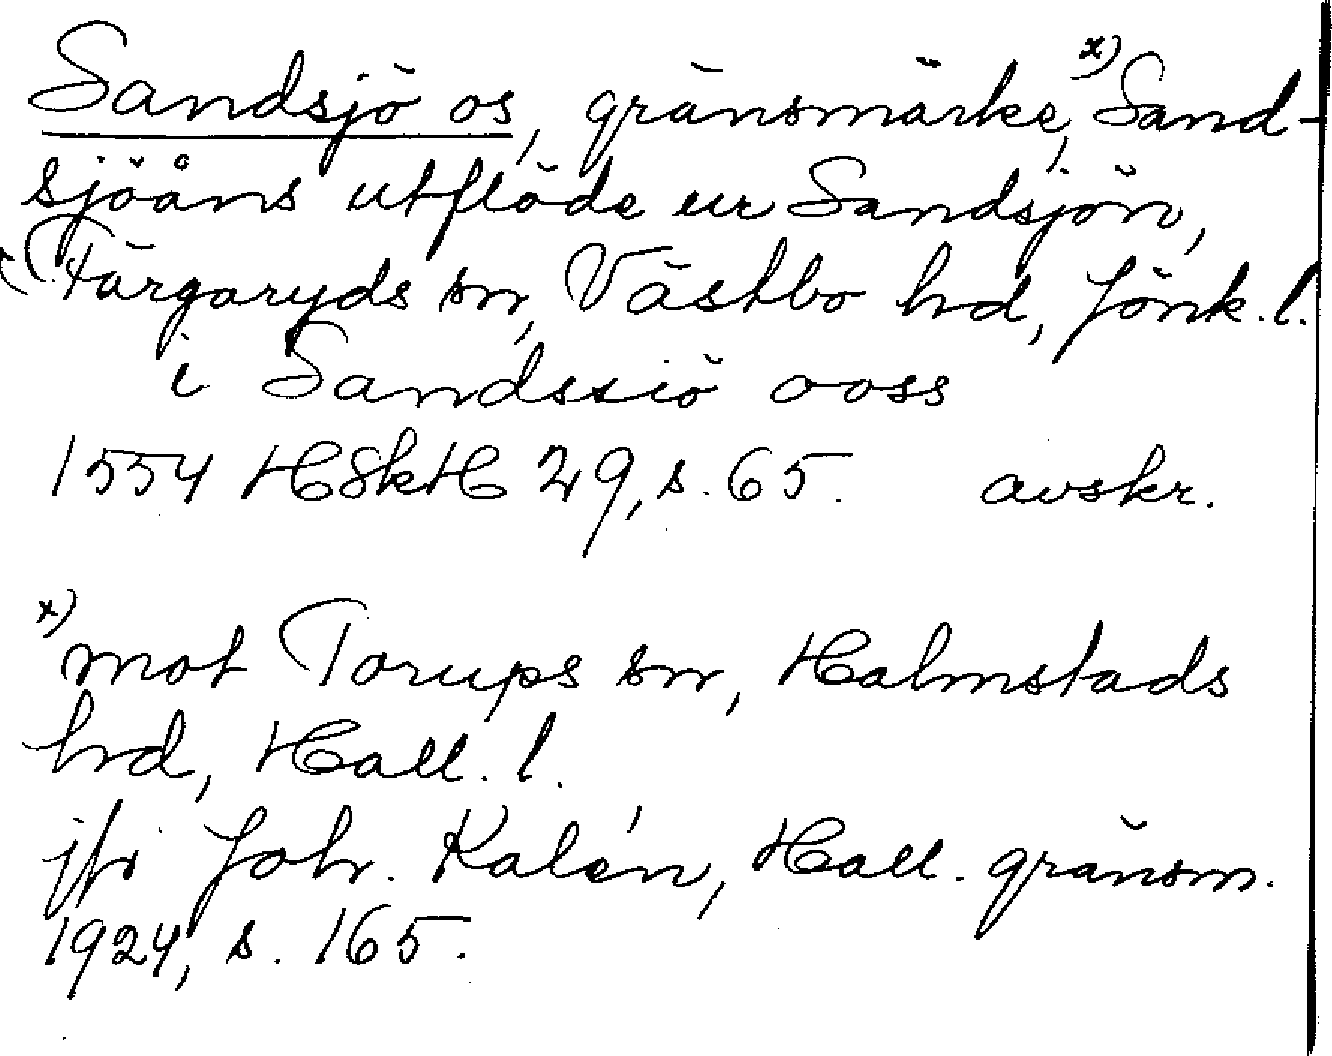 Sandsjö os, gränsmärke,ˣ⁾ Sand-
sjöåns utflöde ur Sandsjön,
Färgaryds sn, Västbo hd, Jönk. l.
i Sandssiö ooss
1554 HSkH 29, s. 65. avskr.
ˣ⁾ mot Torups sn, Halmstads
hd, Hall. l.
jfr Joh. Kalén, Hall. gränsm.
1924, s. 165.